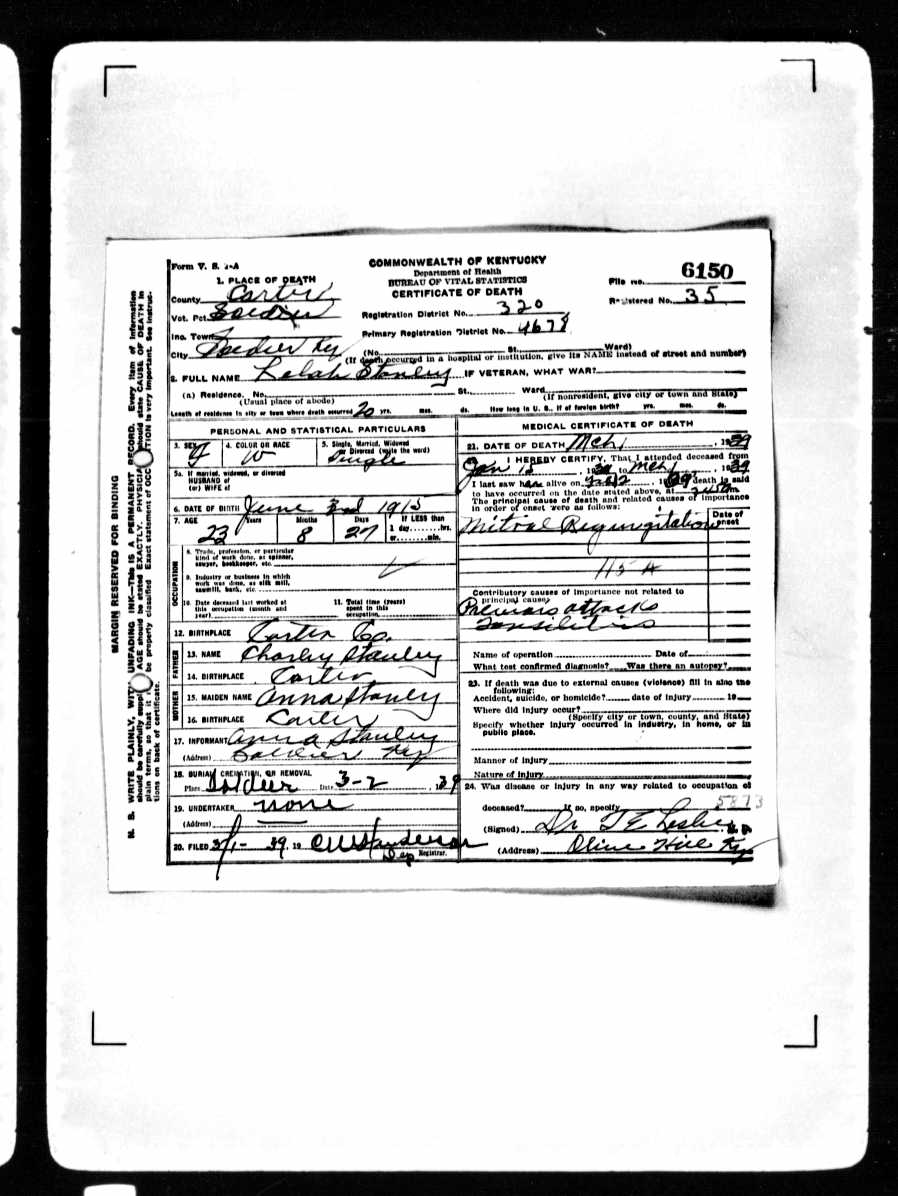 Form V. S. 1-A
COMMONWEALTH OF KENTUCKY
Department of Health
BUREAU OF VITAL STATISTICS
CERTIFICATE OF DEATH
File No. 6150
Registered No. 35
1. PLACE OF DEATH
County Carter
Vot. Pct. Soldier
Registration District No. 320
Inc. Town
Primary Registration District No. 4678
City Soldier Ky
(No. St. Ward)
(If death occurred in a hospital or institution, give its NAME instead of street and number)
2. FULL NAME Lelah Stanley IF VETERAN, WHAT WAR?
(a) Residence. No. St. Ward
(Usual place of abode) (If nonresident, give city or town and State)
Length of residence in city or town where death occurred 20 yrs. mos. ds. How long in U. S., if of foreign birth? yrs. mos. ds.
PERSONAL AND STATISTICAL PARTICULARS
3. SEX F
4. COLOR OR RACE W
5. Single, Married, Widowed or Divorced (write the word) Single
5a. If married, widowed, or divorced
HUSBAND of
(or) WIFE of
6. DATE OF BIRTH June 2nd 1915
7. AGE Years Months Days If LESS than
23 8 27 1 day hrs.
or min.
OCCUPATION
8. Trade, profession, or particular
kind of work done, as spinner,
sawyer, bookkeeper, etc.
9. Industry or business in which
work was done, as silk mill,
sawmill, bank, etc.
10. Date deceased last worked at
this occupation (month and
year)
11. Total time (years)
spent in this
occupation
12. BIRTHPLACE Carter Co.
FATHER
13. NAME Charley Stanley
14. BIRTHPLACE Carter
MOTHER
15. MAIDEN NAME Anna Stanley
16. BIRTHPLACE Carter
17. INFORMANT Anna Stanley
(Address) Soldier Ky
18. BURIAL CREMATION, OR REMOVAL
Place Soldier Date 3-2, 1939
19. UNDERTAKER none
(Address)
20. FILED 3/1- 39, 19 Registrar.
Dep
MEDICAL CERTIFICATE OF DEATH
21. DATE OF DEATH Mch 1, 1939
I HEREBY CERTIFY, That I attended deceased from
Jan 15, 1939 to Mch 1, 1939
I last saw h alive on 1939 death is said
to have occurred on the date stated above, at m.
The principal cause of death and related causes of importance
in order of onset were as follows:
Date of onset
Mitral Regurgitation
115 A
Contributory causes of importance not related to
principal cause:
Previous attacks
Tonsilitis
Name of operation Date of
What test confirmed diagnosis? Was there an autopsy?
23. If death was due to external causes (violence) fill in also the
following:
Accident, suicide, or homicide? date of injury 19
Where did injury occur?
(Specify city or town, county, and State)
Specify whether injury occurred in industry, in home, or in
public place.
Manner of injury
Nature of injury
24. Was disease or injury in any way related to occupation of
deceased? If so, specify 5873
(Signed) Dr T E Leslie M. D.
(Address) Olive Hill Ky
MARGIN RESERVED FOR BINDING
N. B. WRITE PLAINLY, WITH UNFADING INK—This IS A PERMANENT RECORD. Every item of information
should be carefully supplied AGE should be stated EXACTLY. PHYSICIANS should state CAUSE OF DEATH in
plain terms, so that it may be properly classified Exact statement of OCCUPATION is very important. See instruc-
tions on back of certificate.